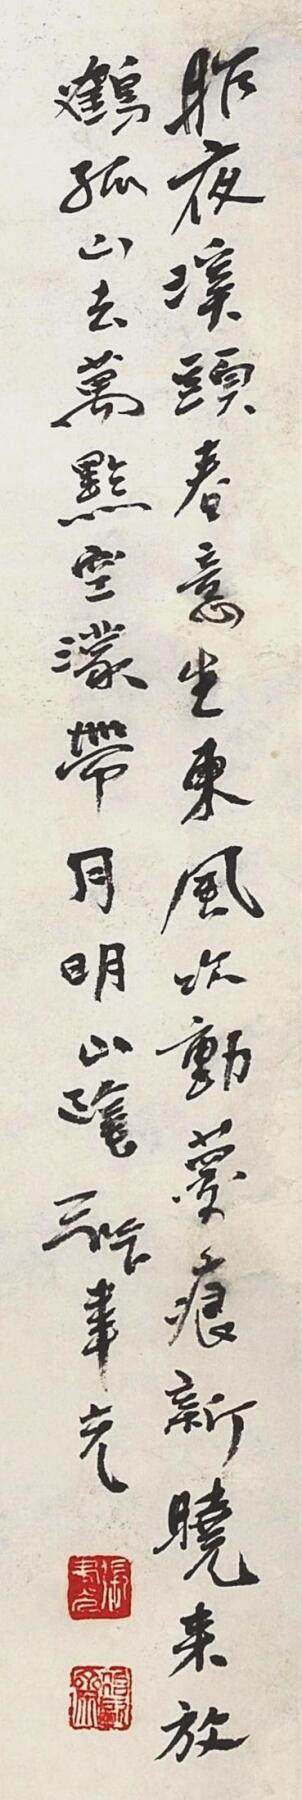 昨夜溪頭春意生東風吹動夢痕新曉來放
鶴孤山去萬點空濛帶月明山三吟聿光